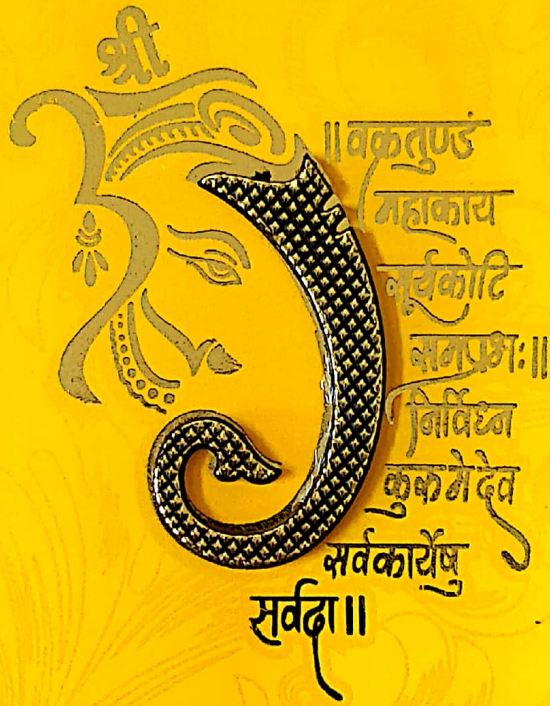 श्री
॥ वक्रतुण्डं
महाकाय
सूर्यकोटि
समप्रभः ॥
निर्विघ्न
कुरु मे देव
सर्वकार्येषु
सर्वदा ॥